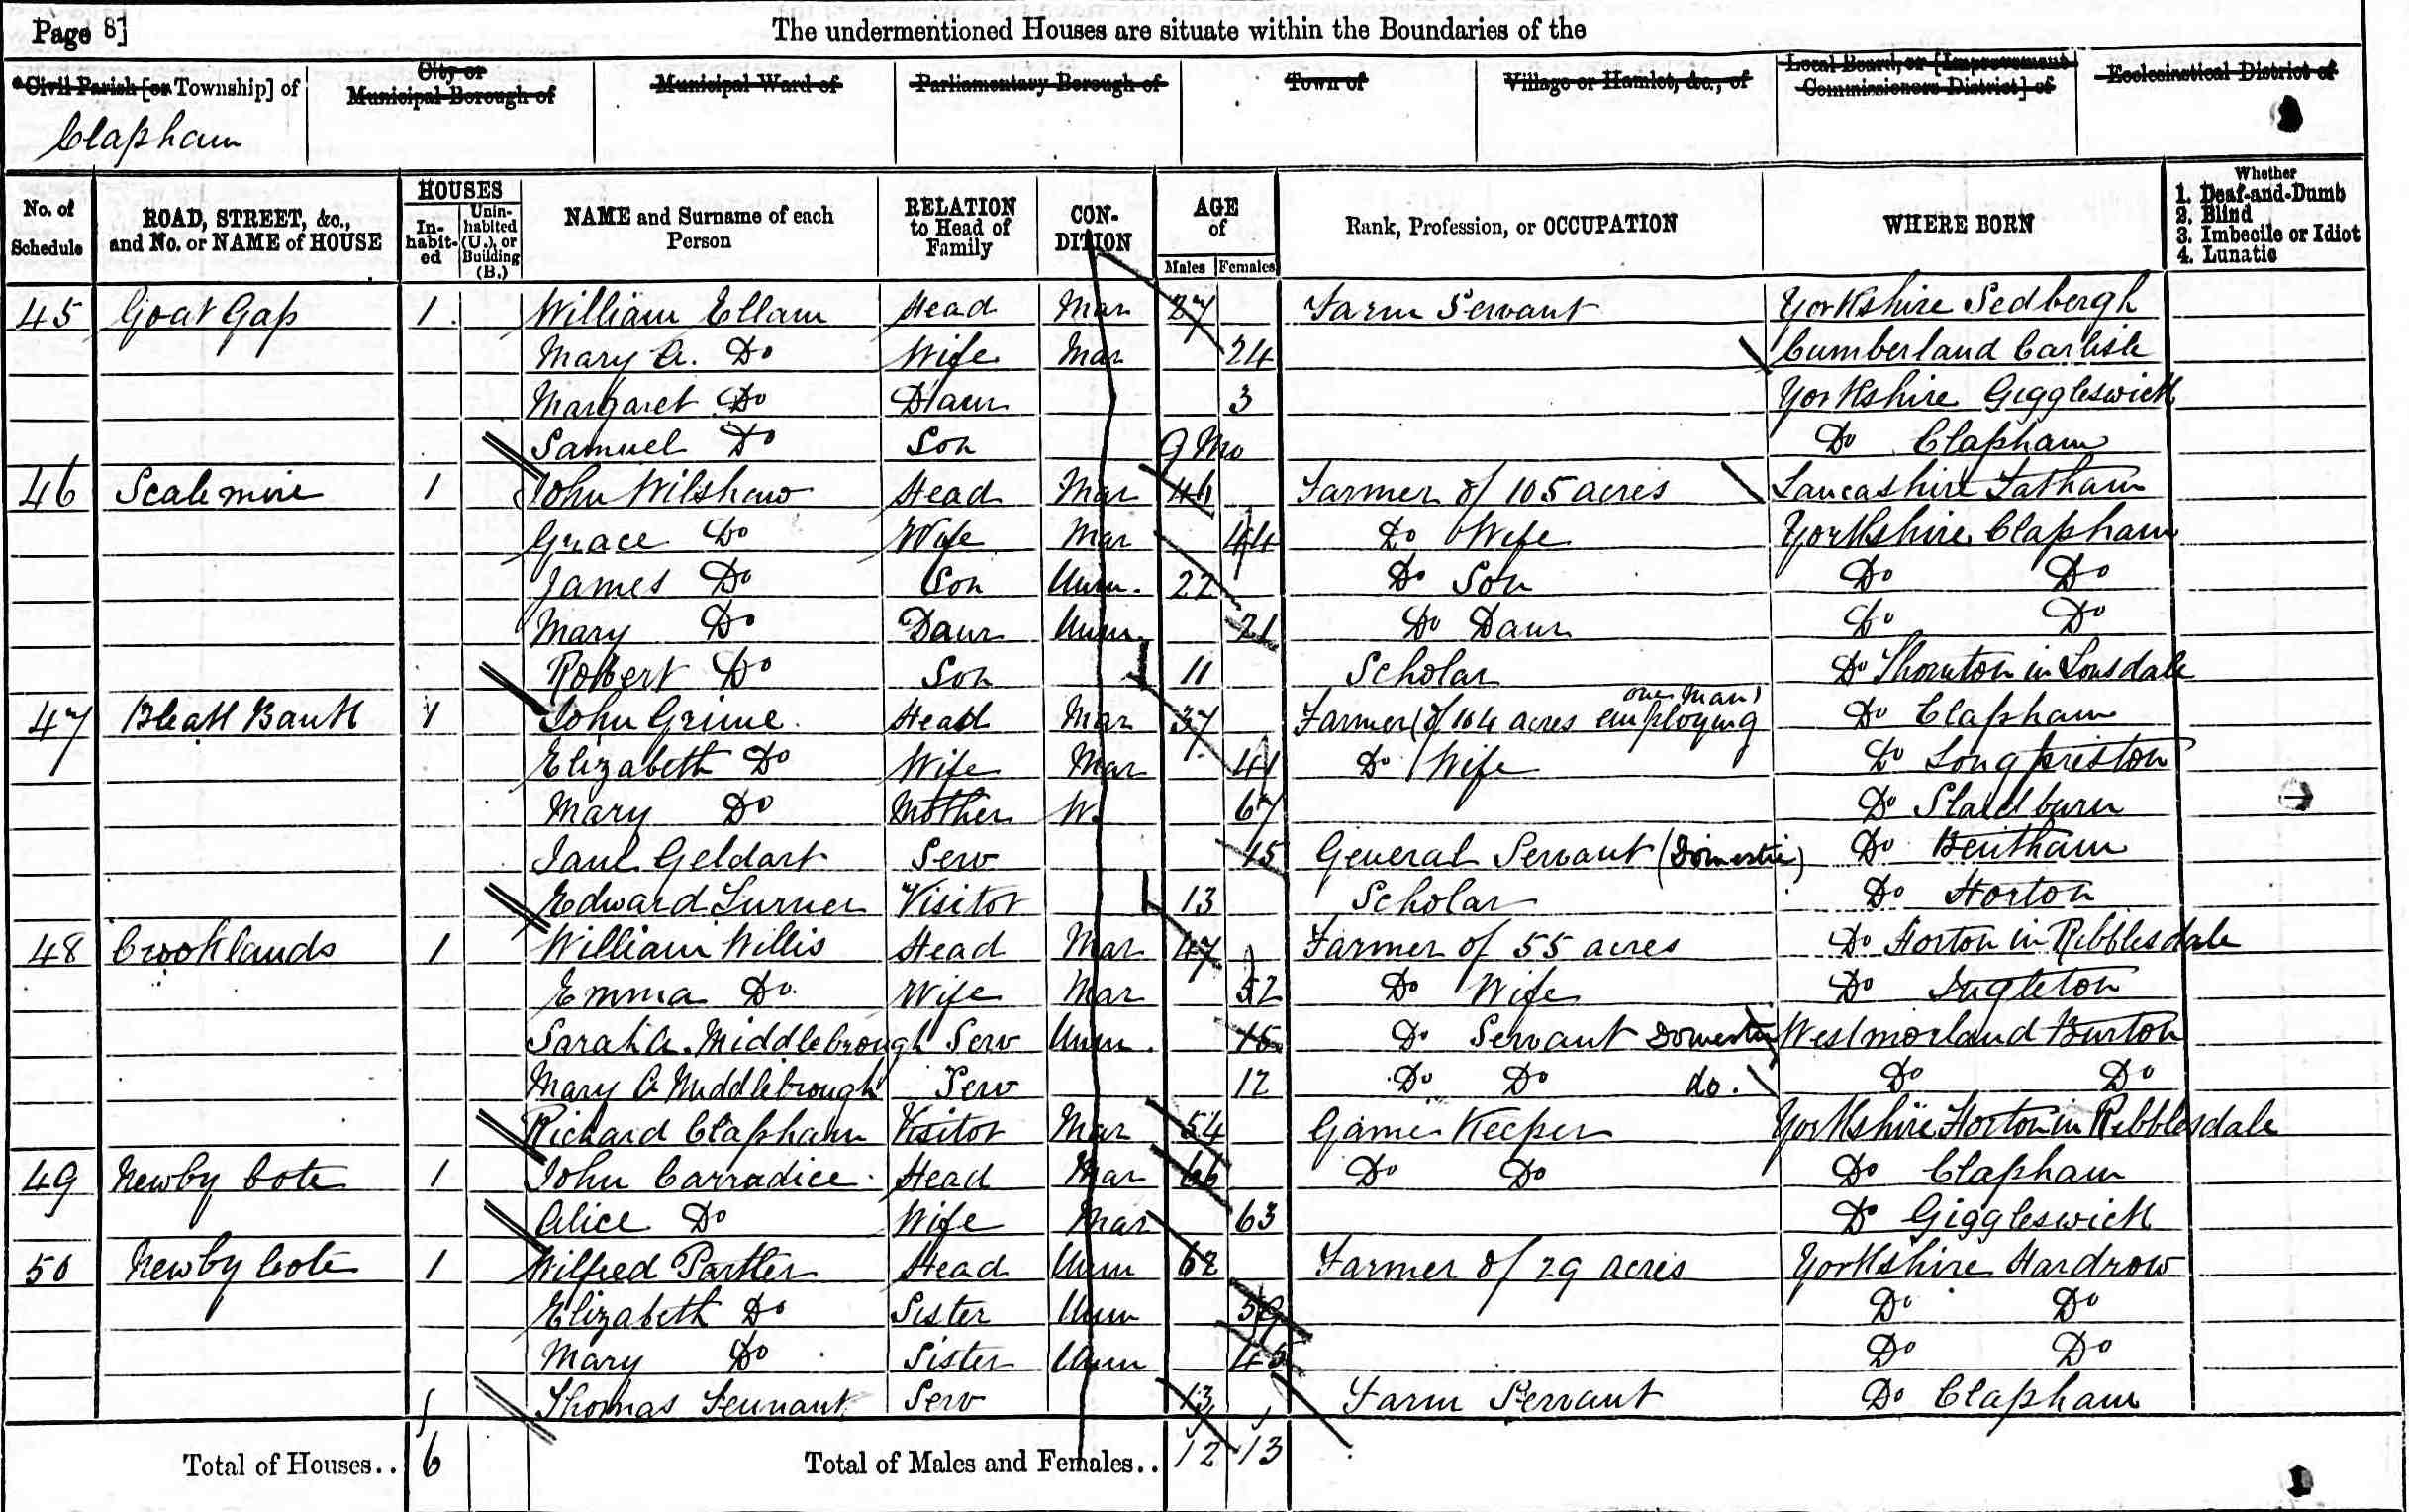 Page 8]
The undermentioned Houses are situate within the Boundaries of the
*Civil Parish [or Township] of
City or Municipal Borough of
Municipal Ward of
Parliamentary Borough of
Town of
Village or Hamlet, &c., of
Local Board, or [Improvement Commissioners District] of
Ecclesiastical District of
Clapham
No. of Schedule
ROAD, STREET, &c., and No. or NAME of HOUSE
HOUSES
In-habit-ed
Unin-habited (U.), or Building (B.)
NAME and Surname of each Person
RELATION to Head of Family
CON-DITION
AGE of
Males
Females
Rank, Profession, or OCCUPATION
WHERE BORN
Whether
1. Deaf-and-Dumb
2. Blind
3. Imbecile or Idiot
4. Lunatic
45 Goat Gap 1 William Ellam Head Mar 27 Farm Servant Yorkshire Sedbergh
Mary A. Do Wife Mar 24 Cumberland Carlisle
Margaret Do Daur 3 Yorkshire Giggleswick
Samuel Do Son 9 Mo Do Clapham
46 Scalemire 1 John Wilshaw Head Mar 46 Farmer of 105 acres Lancashire Tatham
Grace Do Wife Mar 44 Do Wife Yorkshire Clapham
James Do Son Unm. 22 Do Son Do Do
Mary Do Daur Unm. 21 Do Daur Do Do
Robert Do Son 11 Scholar Do Thornton in Lonsdale
47 Bleak Bank 1 John Grime Head Mar 37 Farmer (of 104 acres employing one man) Do Clapham
Elizabeth Do Wife Mar 41 Do Wife Do Longpriston
Mary Do Mother W. 67 Do Slaidburn
Jane Geldart Serv 15 General Servant (Domestic) Do Bentham
Edward Turner Visitor 13 Scholar Do Horton
48 Crooklands 1 William Willis Head Mar 47 Farmer of 55 acres Do Horton in Ribblesdale
Emma Do Wife Mar 52 Do Wife Do Ingleton
Sarah A. Middlebrough Serv Unm. 15 Do Servant Domestic Westmorland Burton
Mary A Middlebrough Serv 12 Do Do do. Do Do
Richard Clapham Visitor Mar 54 Game Keeper Yorkshire Horton in Ribblesdale
49 Newby Cote 1 John Carradice Head Mar 66 Do Do Do Clapham
Alice Do Wife Mar 63 Do Giggleswick
50 Newby Cote 1 Wilfred Parker Head Unm 62 Farmer of 29 acres Yorkshire Hardrow
Elizabeth Do Sister Unm 59 Do Do
Mary Do Sister Unm 45 Do Do
Thomas Tennant Serv 13 Farm Servant Do Clapham
Total of Houses.. 6 Total of Males and Females.. 12 13